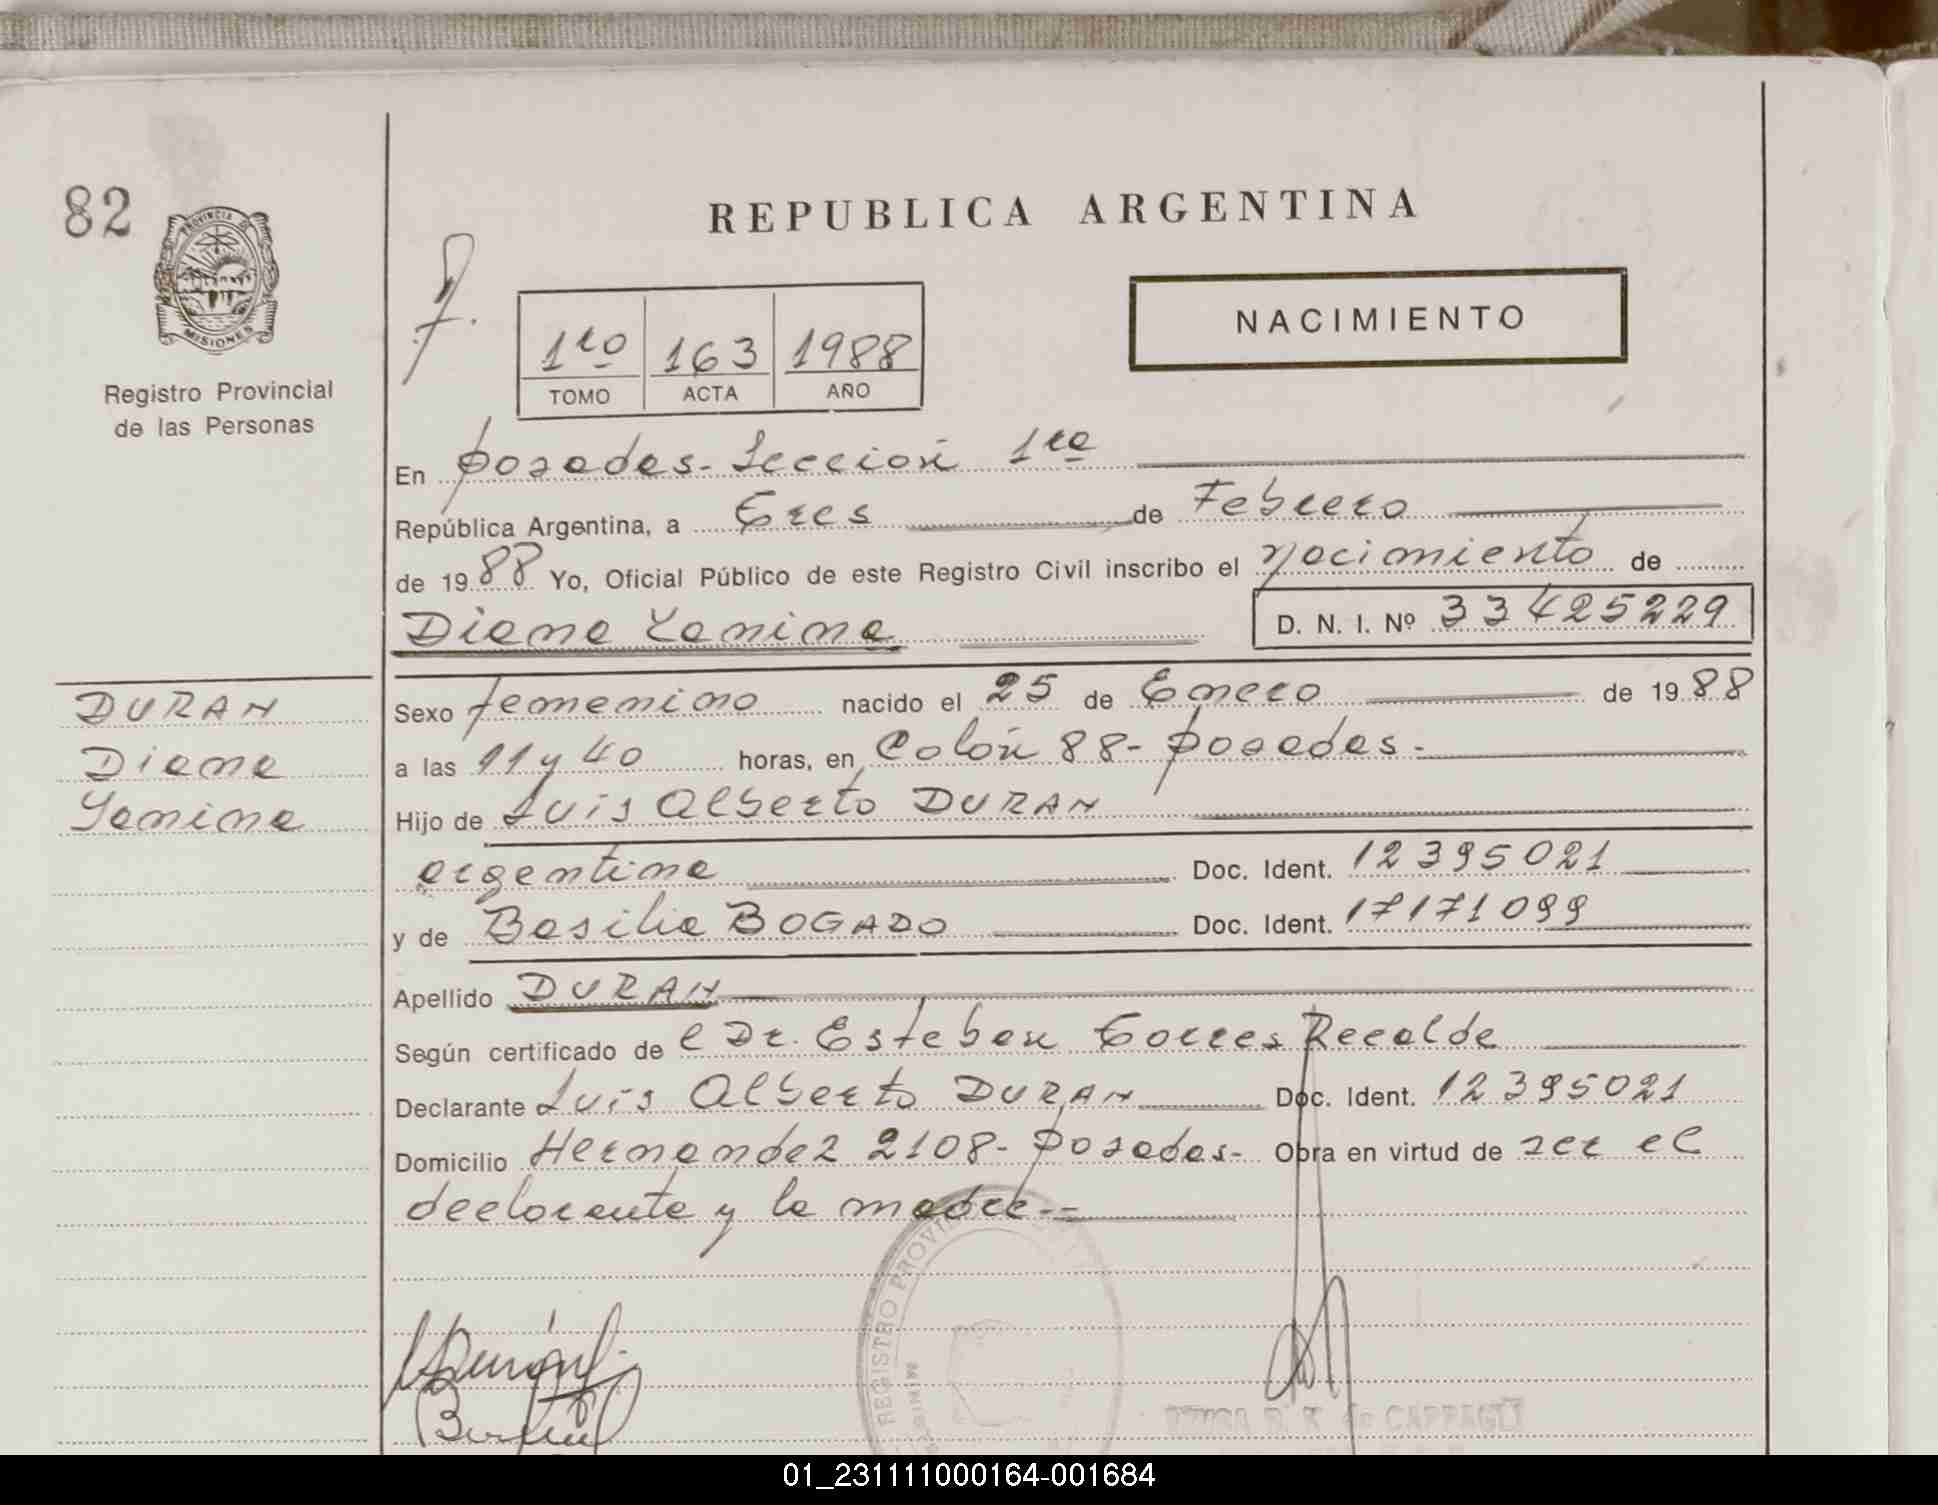 82
PROVINCIA DE
MISIONES
Registro Provincial
de las Personas
REPUBLICA ARGENTINA
1ro 163 1988
TOMO ACTA AÑO
NACIMIENTO
En Posadas - Sección 1ra
República Argentina, a Tres de Febrero
de 1988 Yo, Oficial Público de este Registro Civil inscribo el nacimiento de
Diana Yanina D. N. I. Nº 33425229
DURAN
Diana
Yanina
Sexo femenino nacido el 25 de Enero de 1988
a las 11 y 40 horas, en Colón 88 - Posadas -
Hijo de Luis Alberto DURAN
argentina Doc. Ident. 12395021
y de Basilia BOGADO Doc. Ident. 17171099
Apellido DURAN
Según certificado de el Dr. Esteban Torres Recalde
Declarante Luis Alberto DURAN Doc. Ident. 12395021
Domicilio Hernandez 2108 - Posadas - Obra en virtud de ser el
declarante y la madre --
REGISTRO PROVINC
de CAPPAGLI
01_231111000164-001684